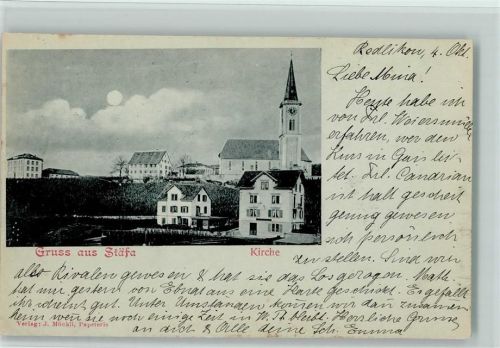 Redlikon, 4. Okt.
Liebe Mina!
Heute habe ich
von Frl.
erfahren, wer den
Kurs in Gais lei-
tet. Frl.
ist halt gescheit
genug gewesen
sich persönlich
stellen. Sind wir
also Rivalen gewesen & hat sie das Los gezogen.
hat mir gestern von Ebnat aus eine Karte geschickt. Es gefällt
ihr gut. Unter Umständen können wir dann zusammen
wenn sie noch einige Zeit in W. Th. bleibt. Herzliche Grüsse
an dich & Alle deine Sch. Emma
Gruss aus Stäfa
Kirche
Verlag: J. Möckli, Papeterie